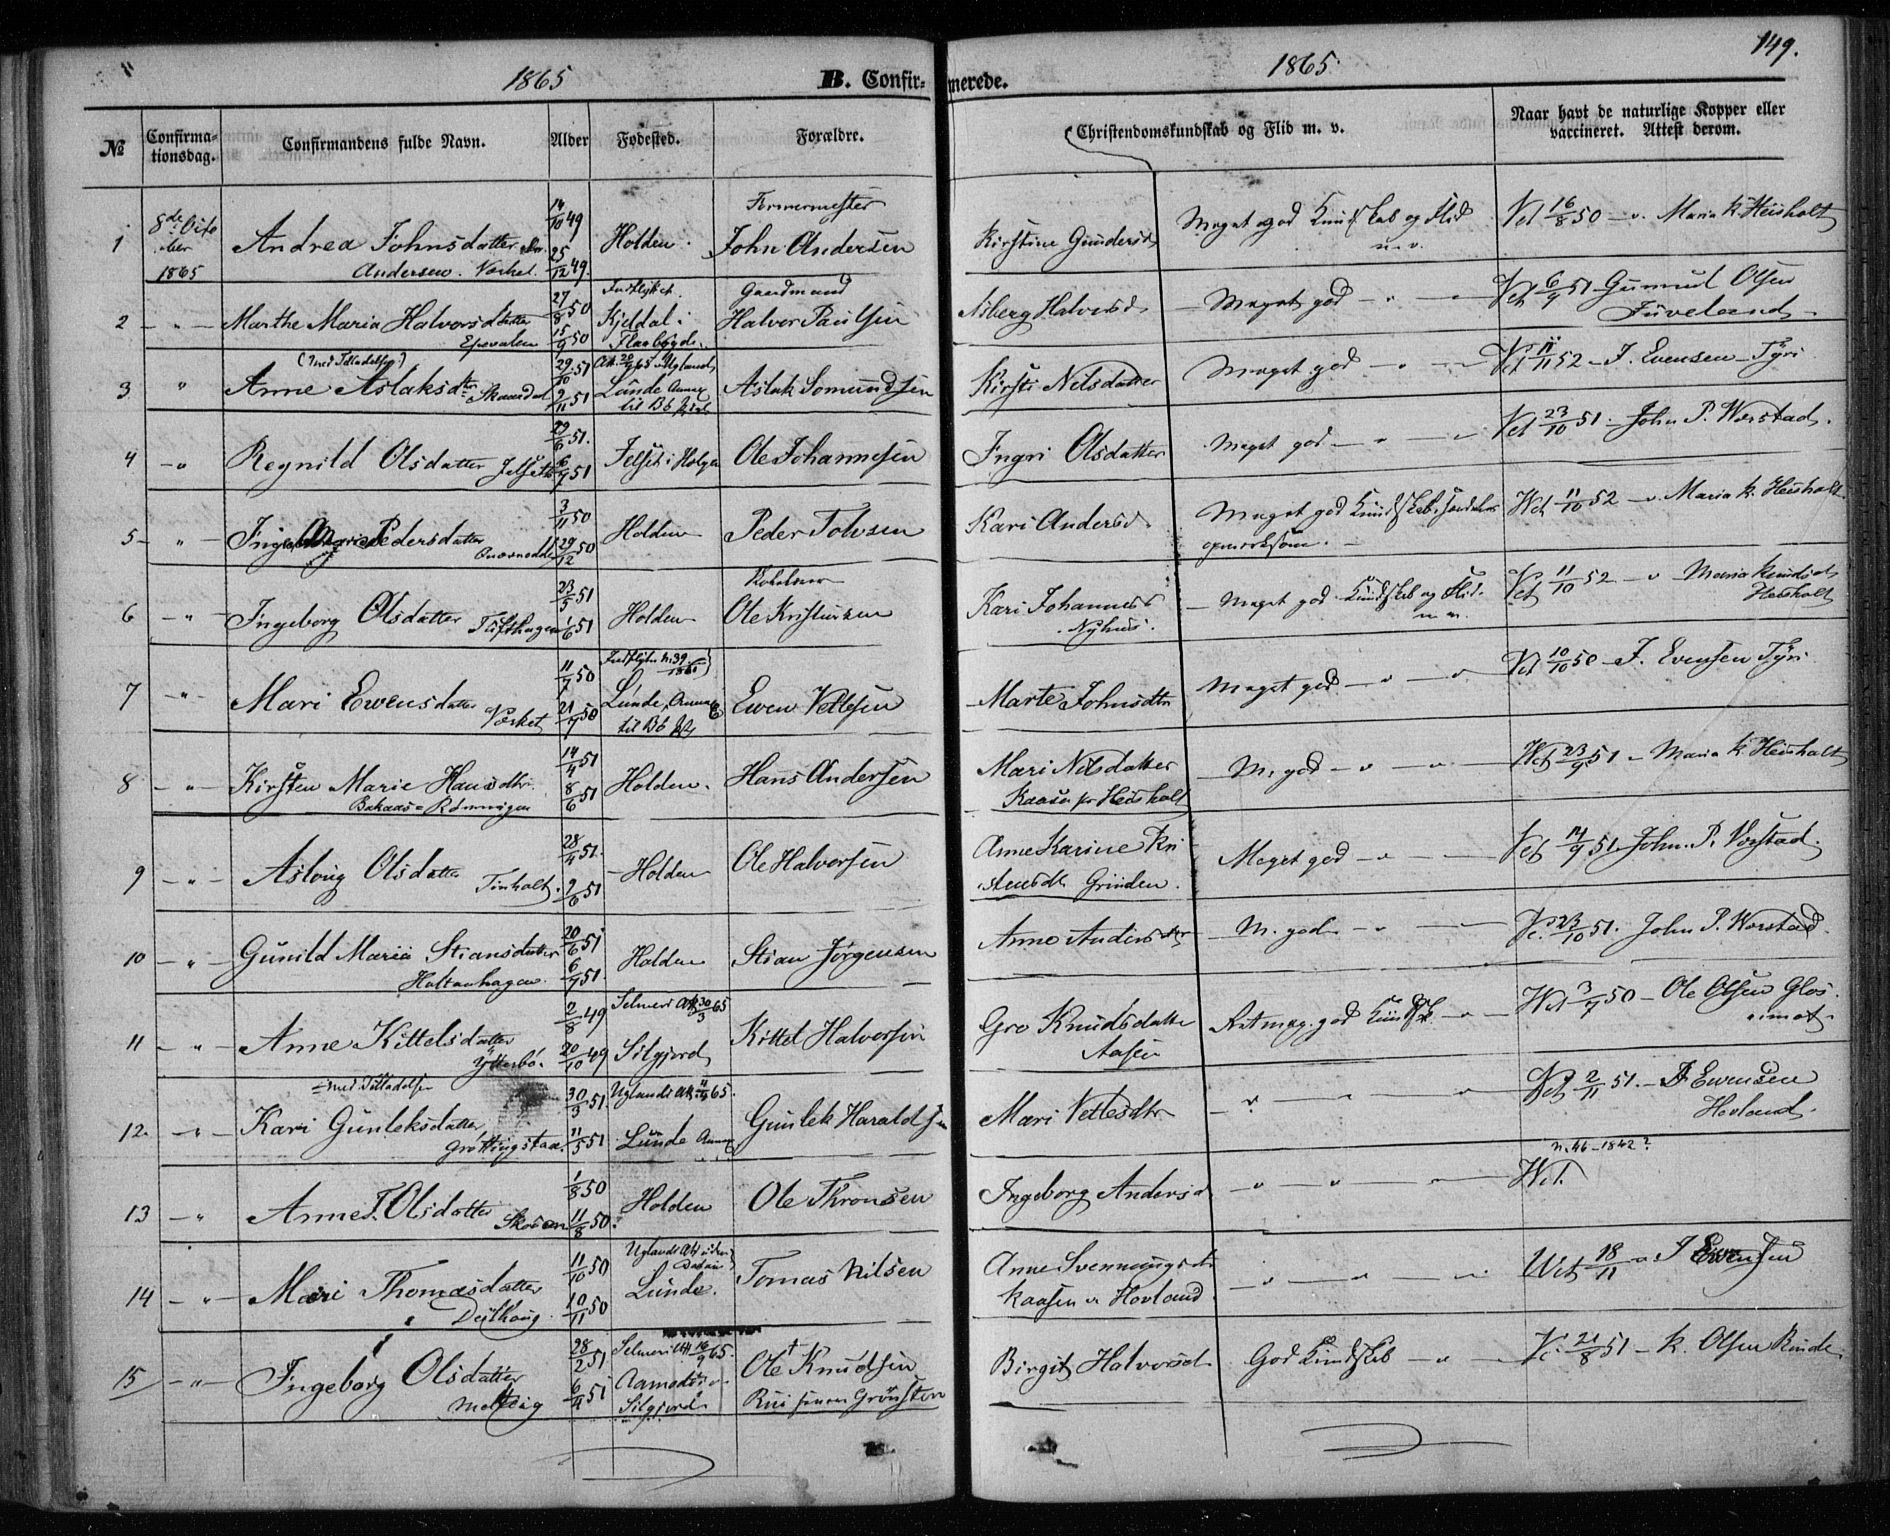 1865 B. Confirmerede. 1865. 149.
№ Confirmationsdag. Confirmandens fulde Navn. Alder Fødested. Forældre. Christendomskundskab og Flid m. v. Naar havt de naturlige Kopper eller vaccineret. Attest derom.
1 8de Octo
ber
1865 Andrea Johnsdatter
Andersen 14/10 49 25/12 49. Holden. John Andersen Kirstine Gundersd Meget god Kundskab og Flid
m. v. Vct 16/8 50 – v. Maria K. Heisholt
2 – " – Marthe Maria Halvorsdatter
27/8 50 15/9 50 Kjeldal i
Flaabygd. Gaardmand
Halvor Paulsen Asberg Halvorsd Meget god – " – " Vct 6/9 51 Gunnul Olsen
3 " Anne Aslaksdtr Skaardal 29/10 51 9/11 51 Lunde Annex
til Bø Aslak Somundsen Kirsti Nilsdatter Meget god – " – " Vct 11/11 52 – J. Evensen Tyri
4 – " Regnild Olsdatter Jelseth 29/6 51. 6/7 51 Jelset i Ole Johannesen Ingri Olsdatter Meget god – " – " Vct 23/10 51 – John P. Værstad.
5 – " – Pedersdatter
3/11 50 29/12 50 Holden Peder Tolvsen Kari Andersd Meget god Kundskab
Vct 11/10 52 – v. Maria K. Heisholt
6 – " – Ingeborg Olsdatter Tufthagen 23/5 51 1/6 51 Holden Ole Kristiansen Kari Johannesd
Nyhus. Meget god Kundskab og Flid.
m. v. Vct 11/10 52 – v Maria Knudsd
Heisholt
7 – " – Mari Evensdatter
Vasket 11/7 50 21/7 50 Lunde, Annex
til Bø Even Vetlesen Marte Johnsdtr Meget god – " – " Vct 10/10 50 – J. Evensen Tyri
8 – " – Kirsten Marie Hansdtr.
Bakaas-Rønningen 14/4 51 8/6 51 Holden. Hans Andersen Mari Nilsdatter
Kaasa Heisholt M. god – " – " Vct 23/9 51 – Maria K. Heisholt
9 – " – Asloug Olsdatter
Tinholt. 28/4 51. 2/6 51 Holden Ole Halvorsen Anne Karine Kri
stensdtr Grinden. Meget god – " – Vct 14/9 51. John P. Vorstad.
10 – " – Gunild Maria Stiansdatter
Holtanhagen. 20/6 51 6/7 51. Holden Stian Jørgensen Anne Andersdtr M. god – " – Vc. 23/10 51. John P. Vorstad.
11 – " – Anne Kittelsdatter
Ytterbø. 2/8 49 20/10 49 30/3 65
Silgjord Kittel Halvorsen Gro Knudsdatter
Aasen god Kundsk. – " – Vct 3/7 50 – Ole Olsen Glos
imot
12. – " – med Tilladelse
Kari Gunleksdatter
30/3 51. 11/5 51 65.
Lunde Annex Gunlek Haraldsen Mari Vetlesdtr – " – " Vct 2/11 51. – J Evensen
Hovland.
13 – " Anne T. Olsdatter 1/8 50 11/8 50. Holden Ole Thronsen Ingeborg Andersd – " – " – " n. 46 – 1842?
Vct.
14 – " – Mari Thomasdatter
11/10 50 10/11 50 Lunde. Tomas Nilsen Anne Svenningsdtr
Kaasen v Hovland. – " – " – " Vct 18/11 v J Evensen
15 – " – Ingeborg Olsdatter
28/2 51 6/4 51 16/9 65.
Silgjord Ole Knudsen
Birgit Halvorsd God Kundskab – " – Vc. 21/8 51 – K. Olsen Rinde